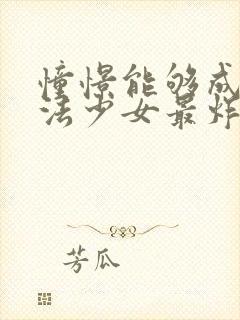 憧憬能够成
法少女最炸
芳瓜